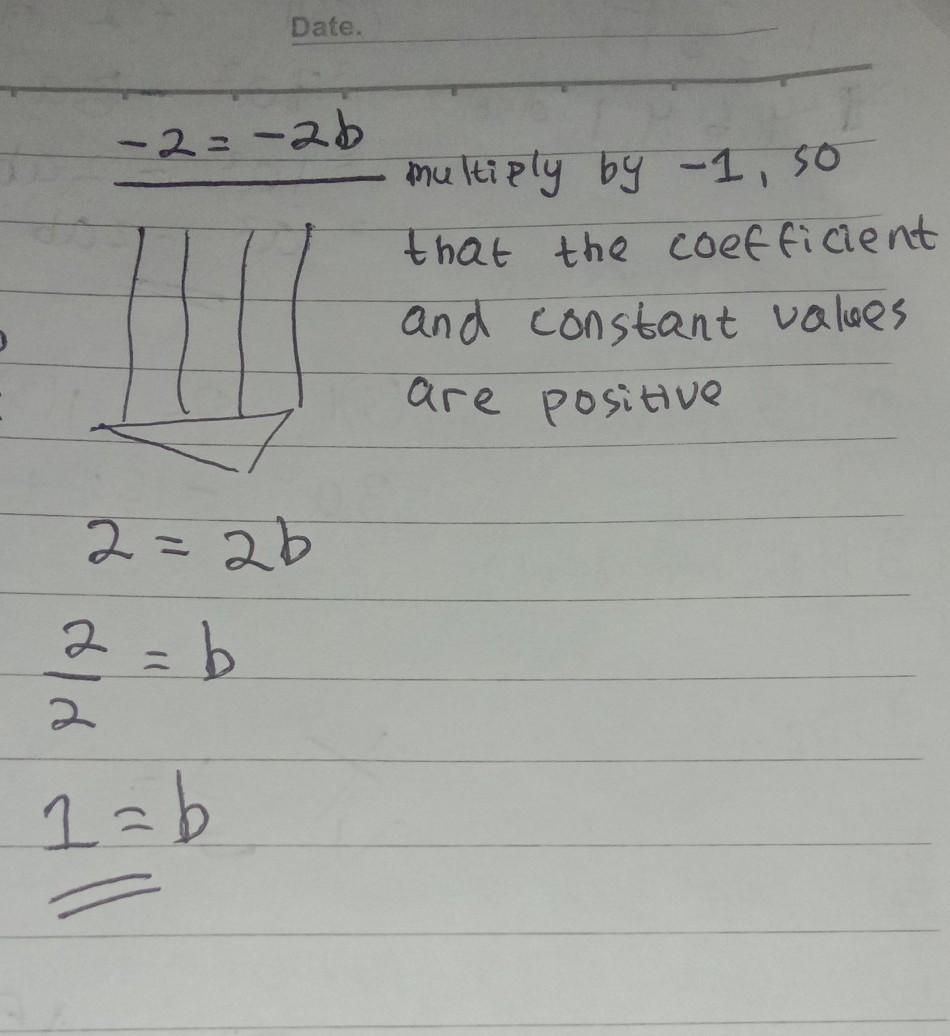 Date.
-2 = -2b
multiply by -1, so
that the coefficient
and constant values
are positive
2 = 2b
2/2 = b
1 = b